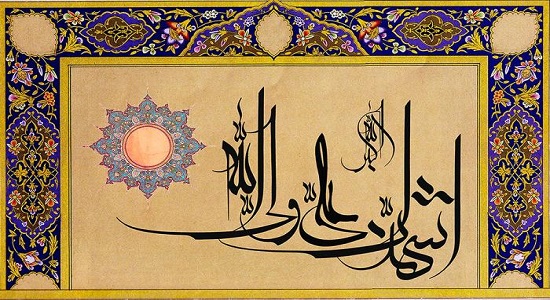 الله اکبر
اشهد ان علی ولی الله